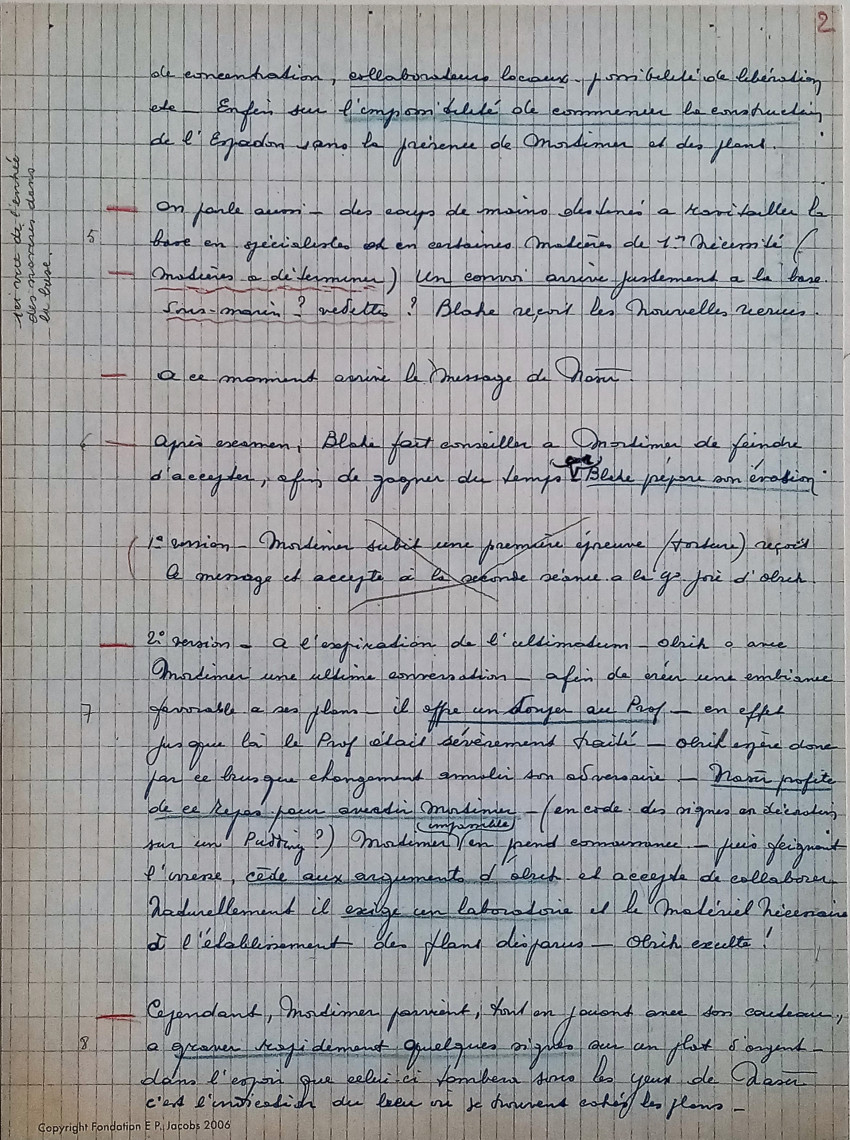 2
de concentration, collaborateurs locaux. possibilité de libération
etc — Enfin sur l'impossibilité de commencer la construction
de l'Espadon sans la présence de Mortimer et des plans.
ici vue de l'entrée
des navires dans
la base.
— On parle aussi — des coups de mains destinés a ravitailler la
5 base en spécialistes et en certaines matières de 1re Nécessité (
— Matières a déterminer) Un convoi arrive justement a la base.
Sous-marin ? vedettes ? Blake reçoit les Nouvelles recrues.
— a ce moment arrive le Message de Nasir.
6 — Après examen, Blake fait conseiller a Mortimer de feindre
d'accepter, afin de gagner du temps Blake prépare son évasion
1e version — Mortimer subit une première épreuve (torture) reçoit
le message et accepte à la seconde séance a la gde joie d'Olrik.
— 2e version — a l'expiration de l'ultimatum — Olrik a avec
Mortimer une ultime conversation — afin de créer une ambiance
7 favorable a ses plans — il offre un souper au Prof — en effet
jusque là le Prof était sévèrement traité — Olrik espère donc
par ce brusque changement amolir son adversaire — Nasir profite
de ce repas pour avertir Mortimer — (en code. des signes en décoration
sur un Pudding ?) Mortimer (impassible) en prend connaissance — puis feignant
l'ivresse, cède aux arguments d'Olrik et accepte de collaborer
Naturellement il exige un laboratoire et le Matériel Nécessaire
à l'établissement des plans disparus — Olrik exulte !
— Cependant, Mortimer parvient, tout en jouant avec son couteau,
8 a graver rapidement quelques signes sur un plat d'argent —
dans l'espoir que celui-ci tombera sous les yeux de Nasir
c'est l'indication du lieu où se trouvent cachés les plans —
Copyright Fondation E P. Jacobs 2006